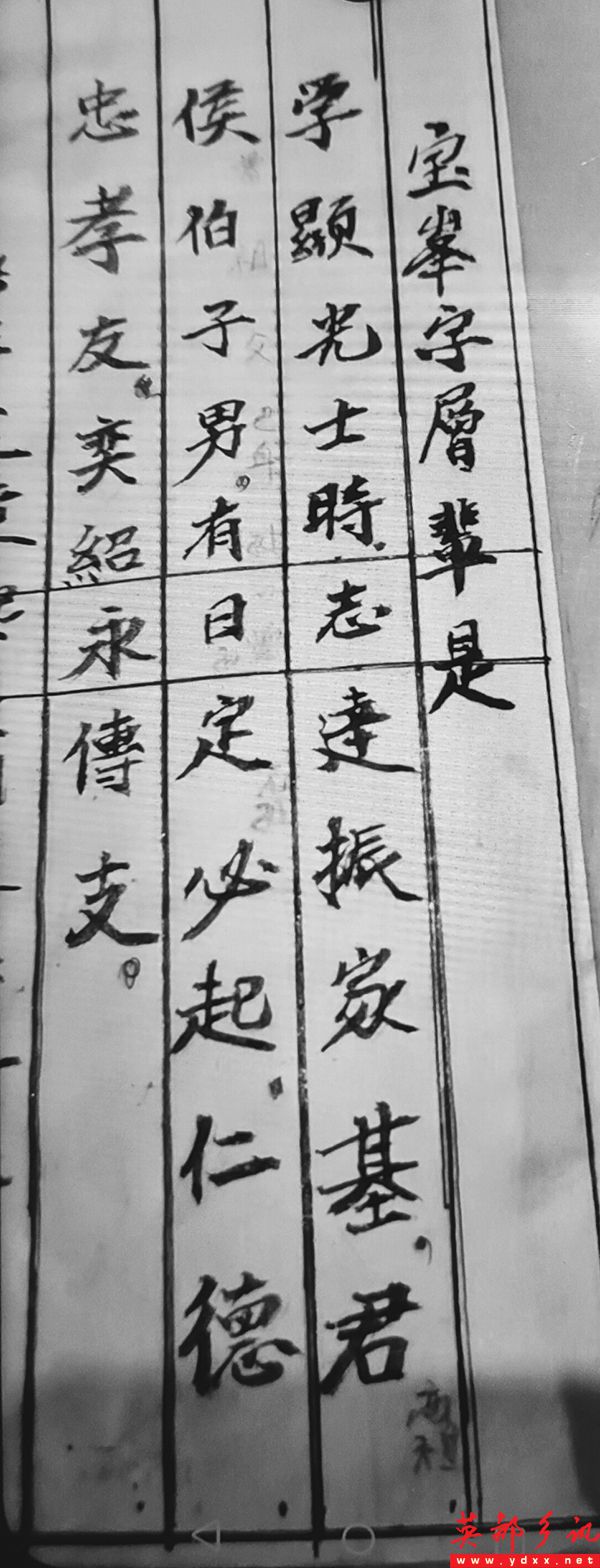 宝峯字層輩是
学顯光士時.志達振家基,君
侯伯子男。有日定必起.仁德
忠孝友。奕紹永傳支。
英都乡讯
www.ydxx.net